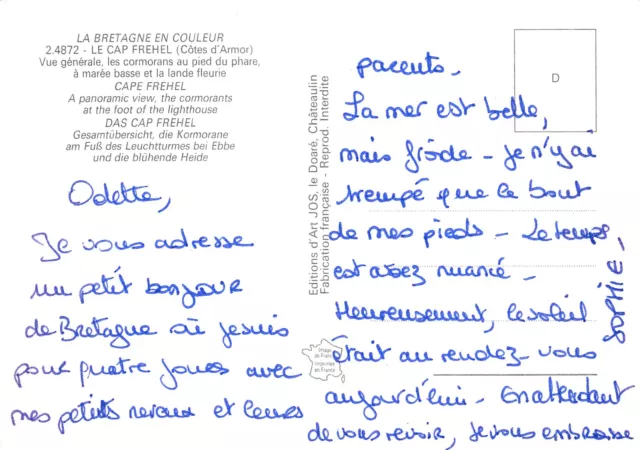 LA BRETAGNE EN COULEUR
2.4872 - LE CAP FREHEL (Côtes d'Armor)
Vue générale, les cormorans au pied du phare,
à marée basse et la lande fleurie
CAPE FREHEL
A panoramic view, the cormorants
at the foot of the lighthouse
DAS CAP FREHEL
Gesamtübersicht, die Kormorane
am Fuß des Leuchtturmes bei Ebbe
und die blühende Heide
Odette,
Je vous adresse
un petit bonjour
de Bretagne où je suis
pour quatre jours avec
mes petits neveux et leurs
Editions d'Art JOS, le Doaré, Châteaulin
Fabrication française - Reprod. Interdite
Image
de France
Imprimée
en France
D
parents.
La mer est belle,
mais froide - Je n'y ai
trempé que le bout
de mes pieds - Le temps,
est assez nuancé -
Heureusement, le soleil
était au rendez-vous
aujourd'hui - En attendant
de vous revoir, je vous embrasse
SOPHIE,